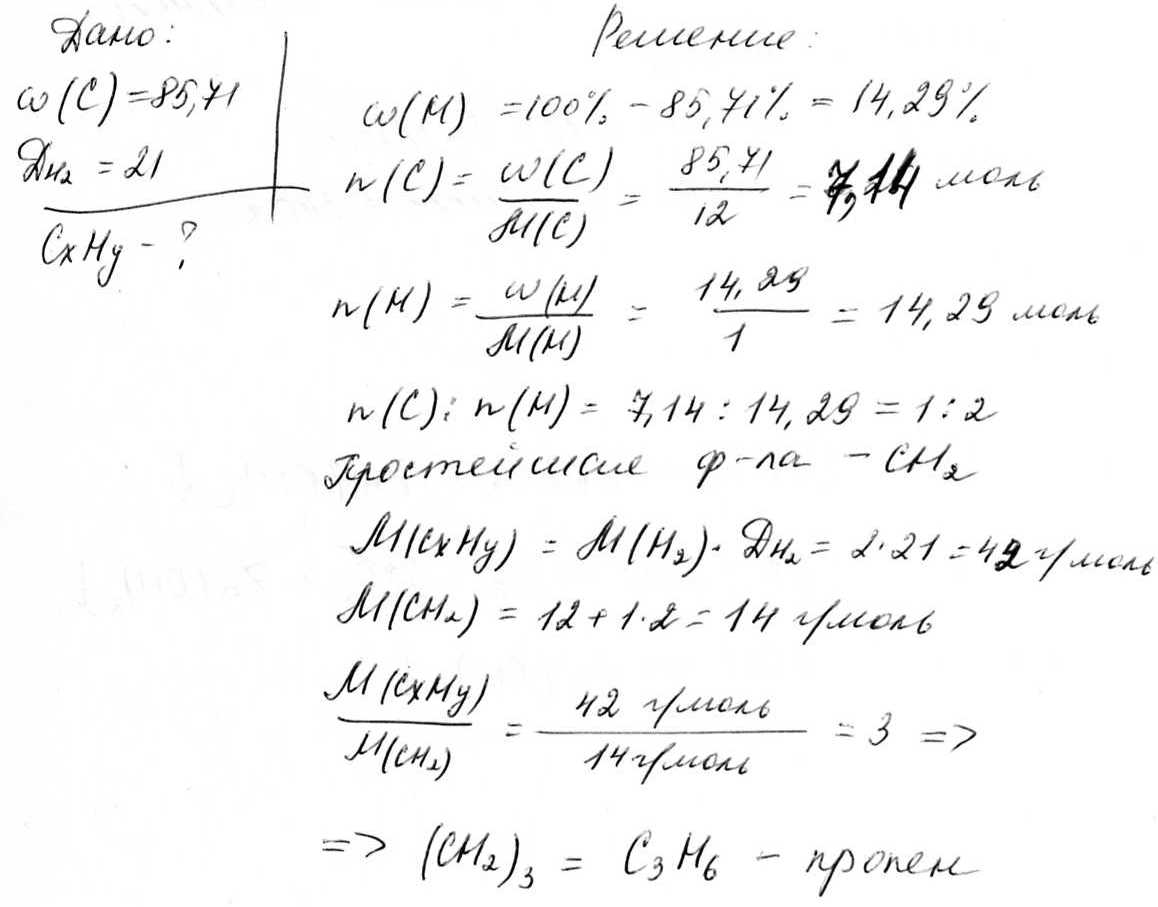 Дано:
ω(C) = 85,71
Dн₂ = 21
CxHy - ?
Решение:
ω(H) = 100% - 85,71% = 14,29%
n(C) = ω(C)/M(C) = 85,71/12 = 7,14 моль
n(H) = ω(H)/M(H) = 14,29/1 = 14,29 моль
n(C) : n(H) = 7,14 : 14,29 = 1 : 2
Простейшая ф-ла - CH₂
M(CxHy) = M(H₂) · Dн₂ = 2 · 21 = 42 г/моль
M(CH₂) = 12 + 1·2 = 14 г/моль
M(CxHy)/M(CH₂) = 42 г/моль/14 г/моль = 3 =>
=> (CH₂)₃ = C₃H₆ - пропен